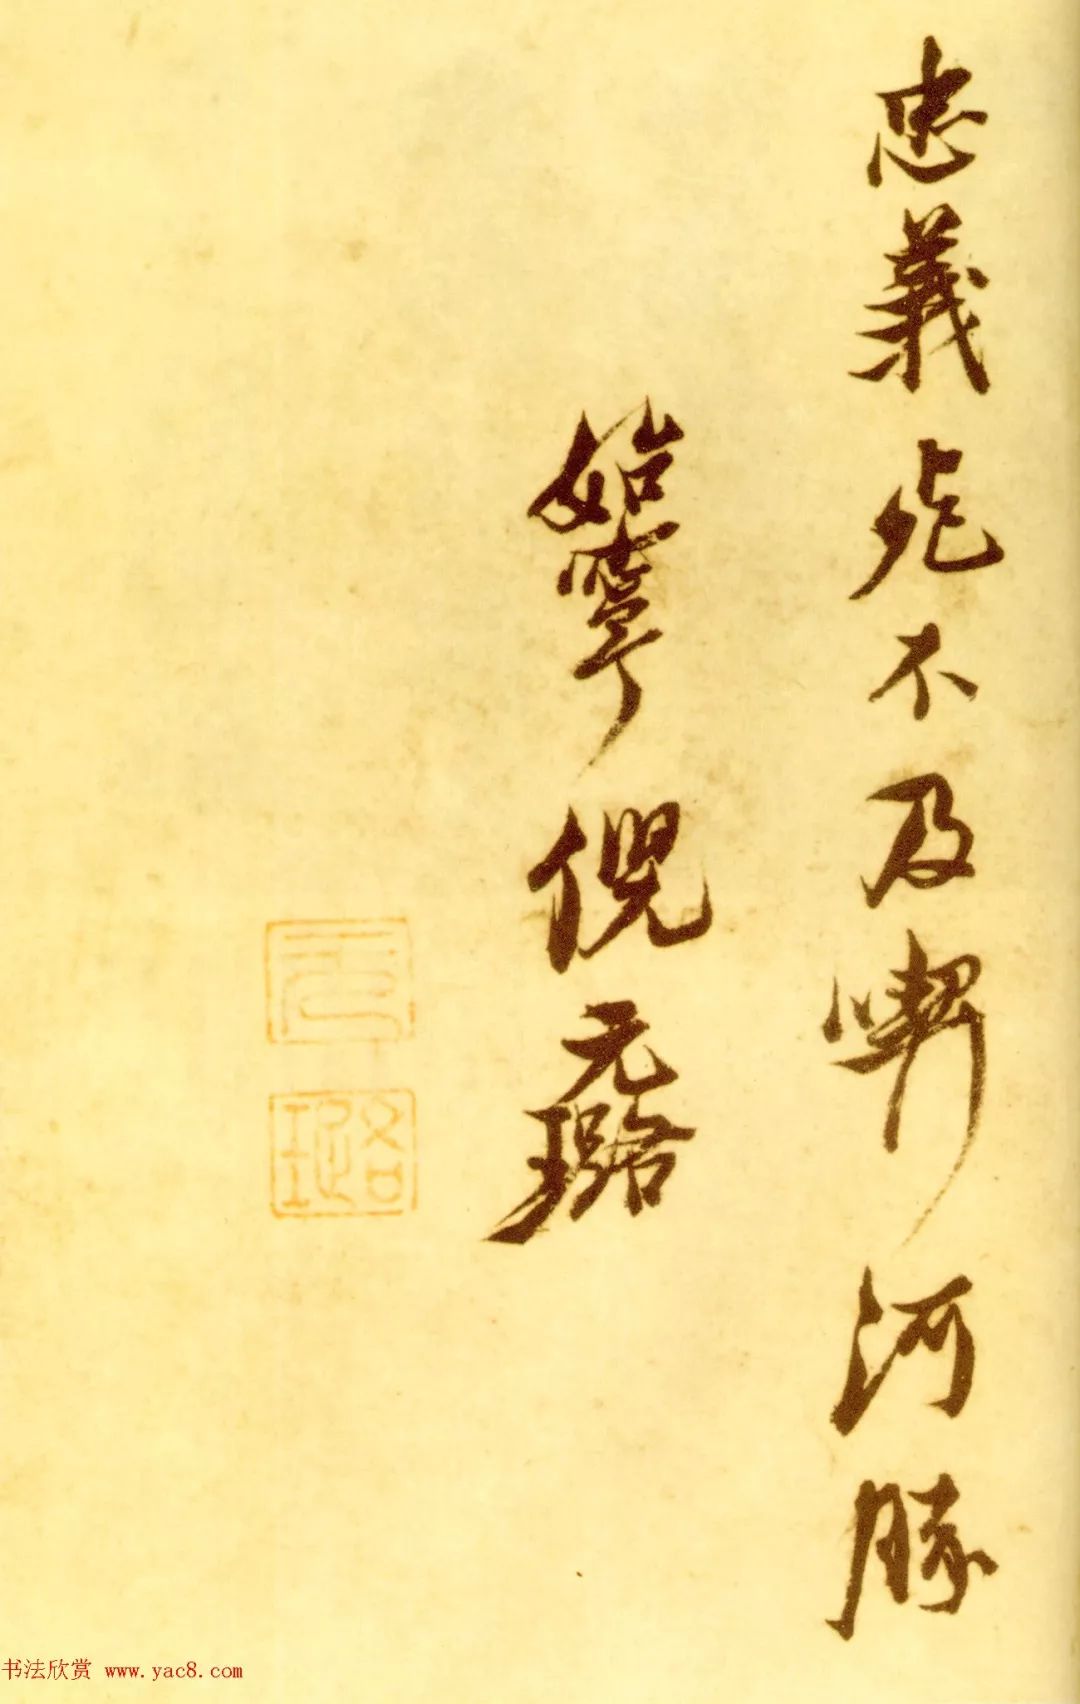 忠義死不及喫河豚
始寧倪元璐
元
璐
书法欣赏 www.yac8.com